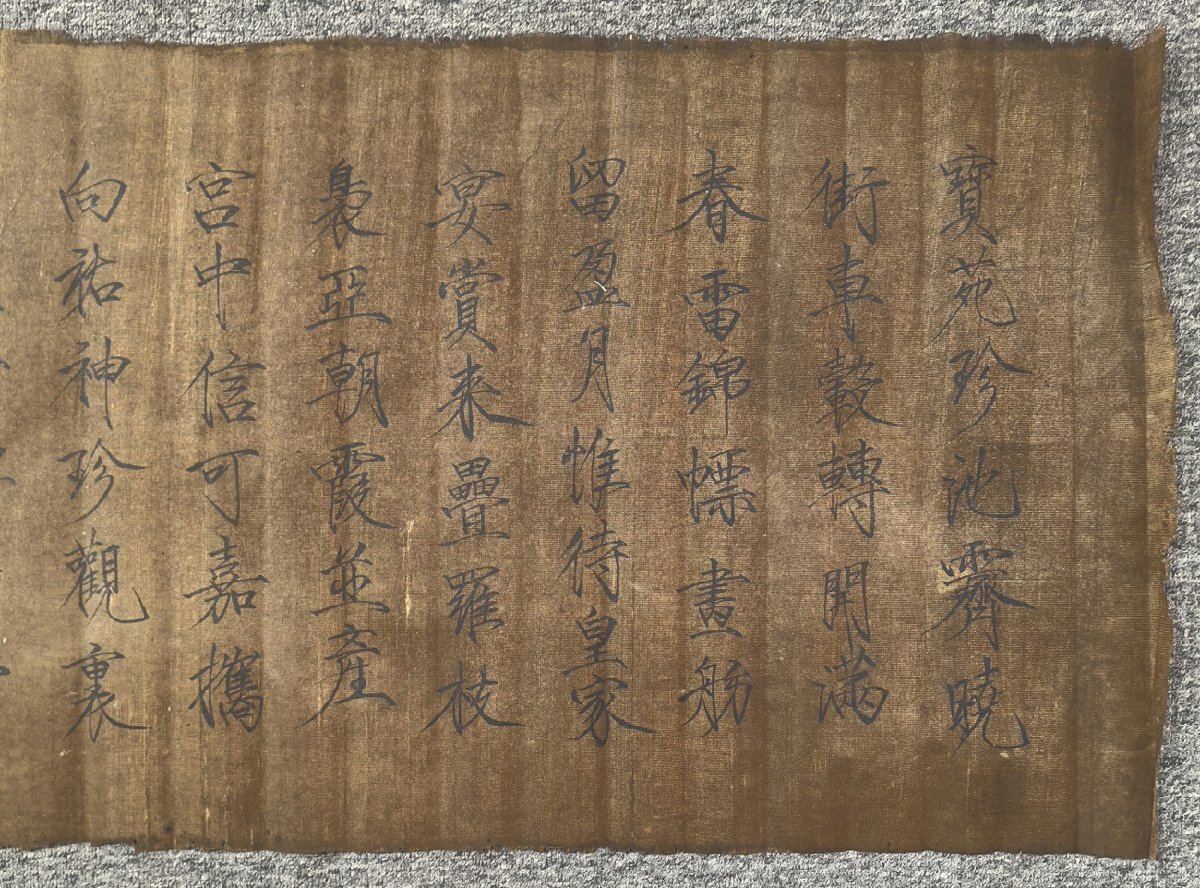 寶苑珍池霽曉
街車轂轉開滿
春雷錦幖畫舫
留盈月惟待皇家
宴賞来疊羅枝
裊亞朝霞並產
宮中信可嘉攜
向祐神珍觀裏